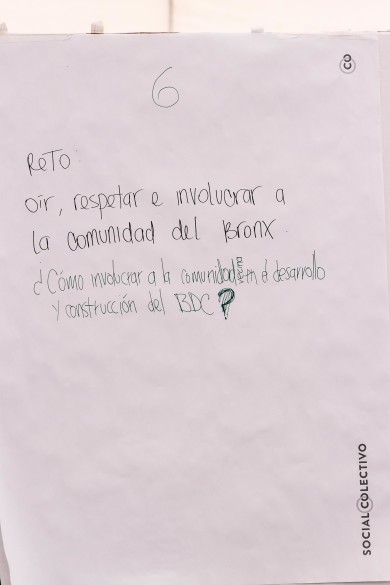 6
CO
RETO
oír, respetar e involucrar a
la comunidad del Bronx.
¿Cómo involucrar a la comunidad en el desarrollo
y construcción del BDC?
SOCIAL COLECTIVO